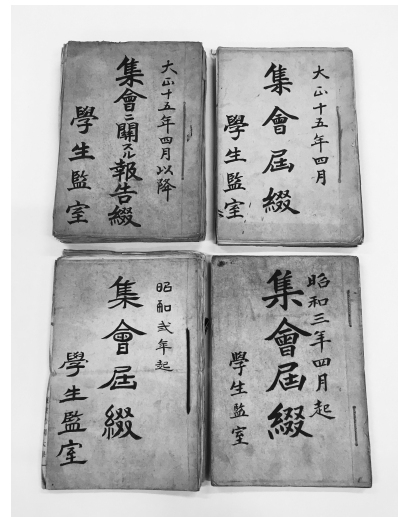 大正十五年四月以降
集會ニ關スル報告綴
學生監室
大正十五年四月
集會屆綴
學生監室
昭和弐年起
集會屆綴
學生監室
昭和三年四月起
集會屆綴
學生監室